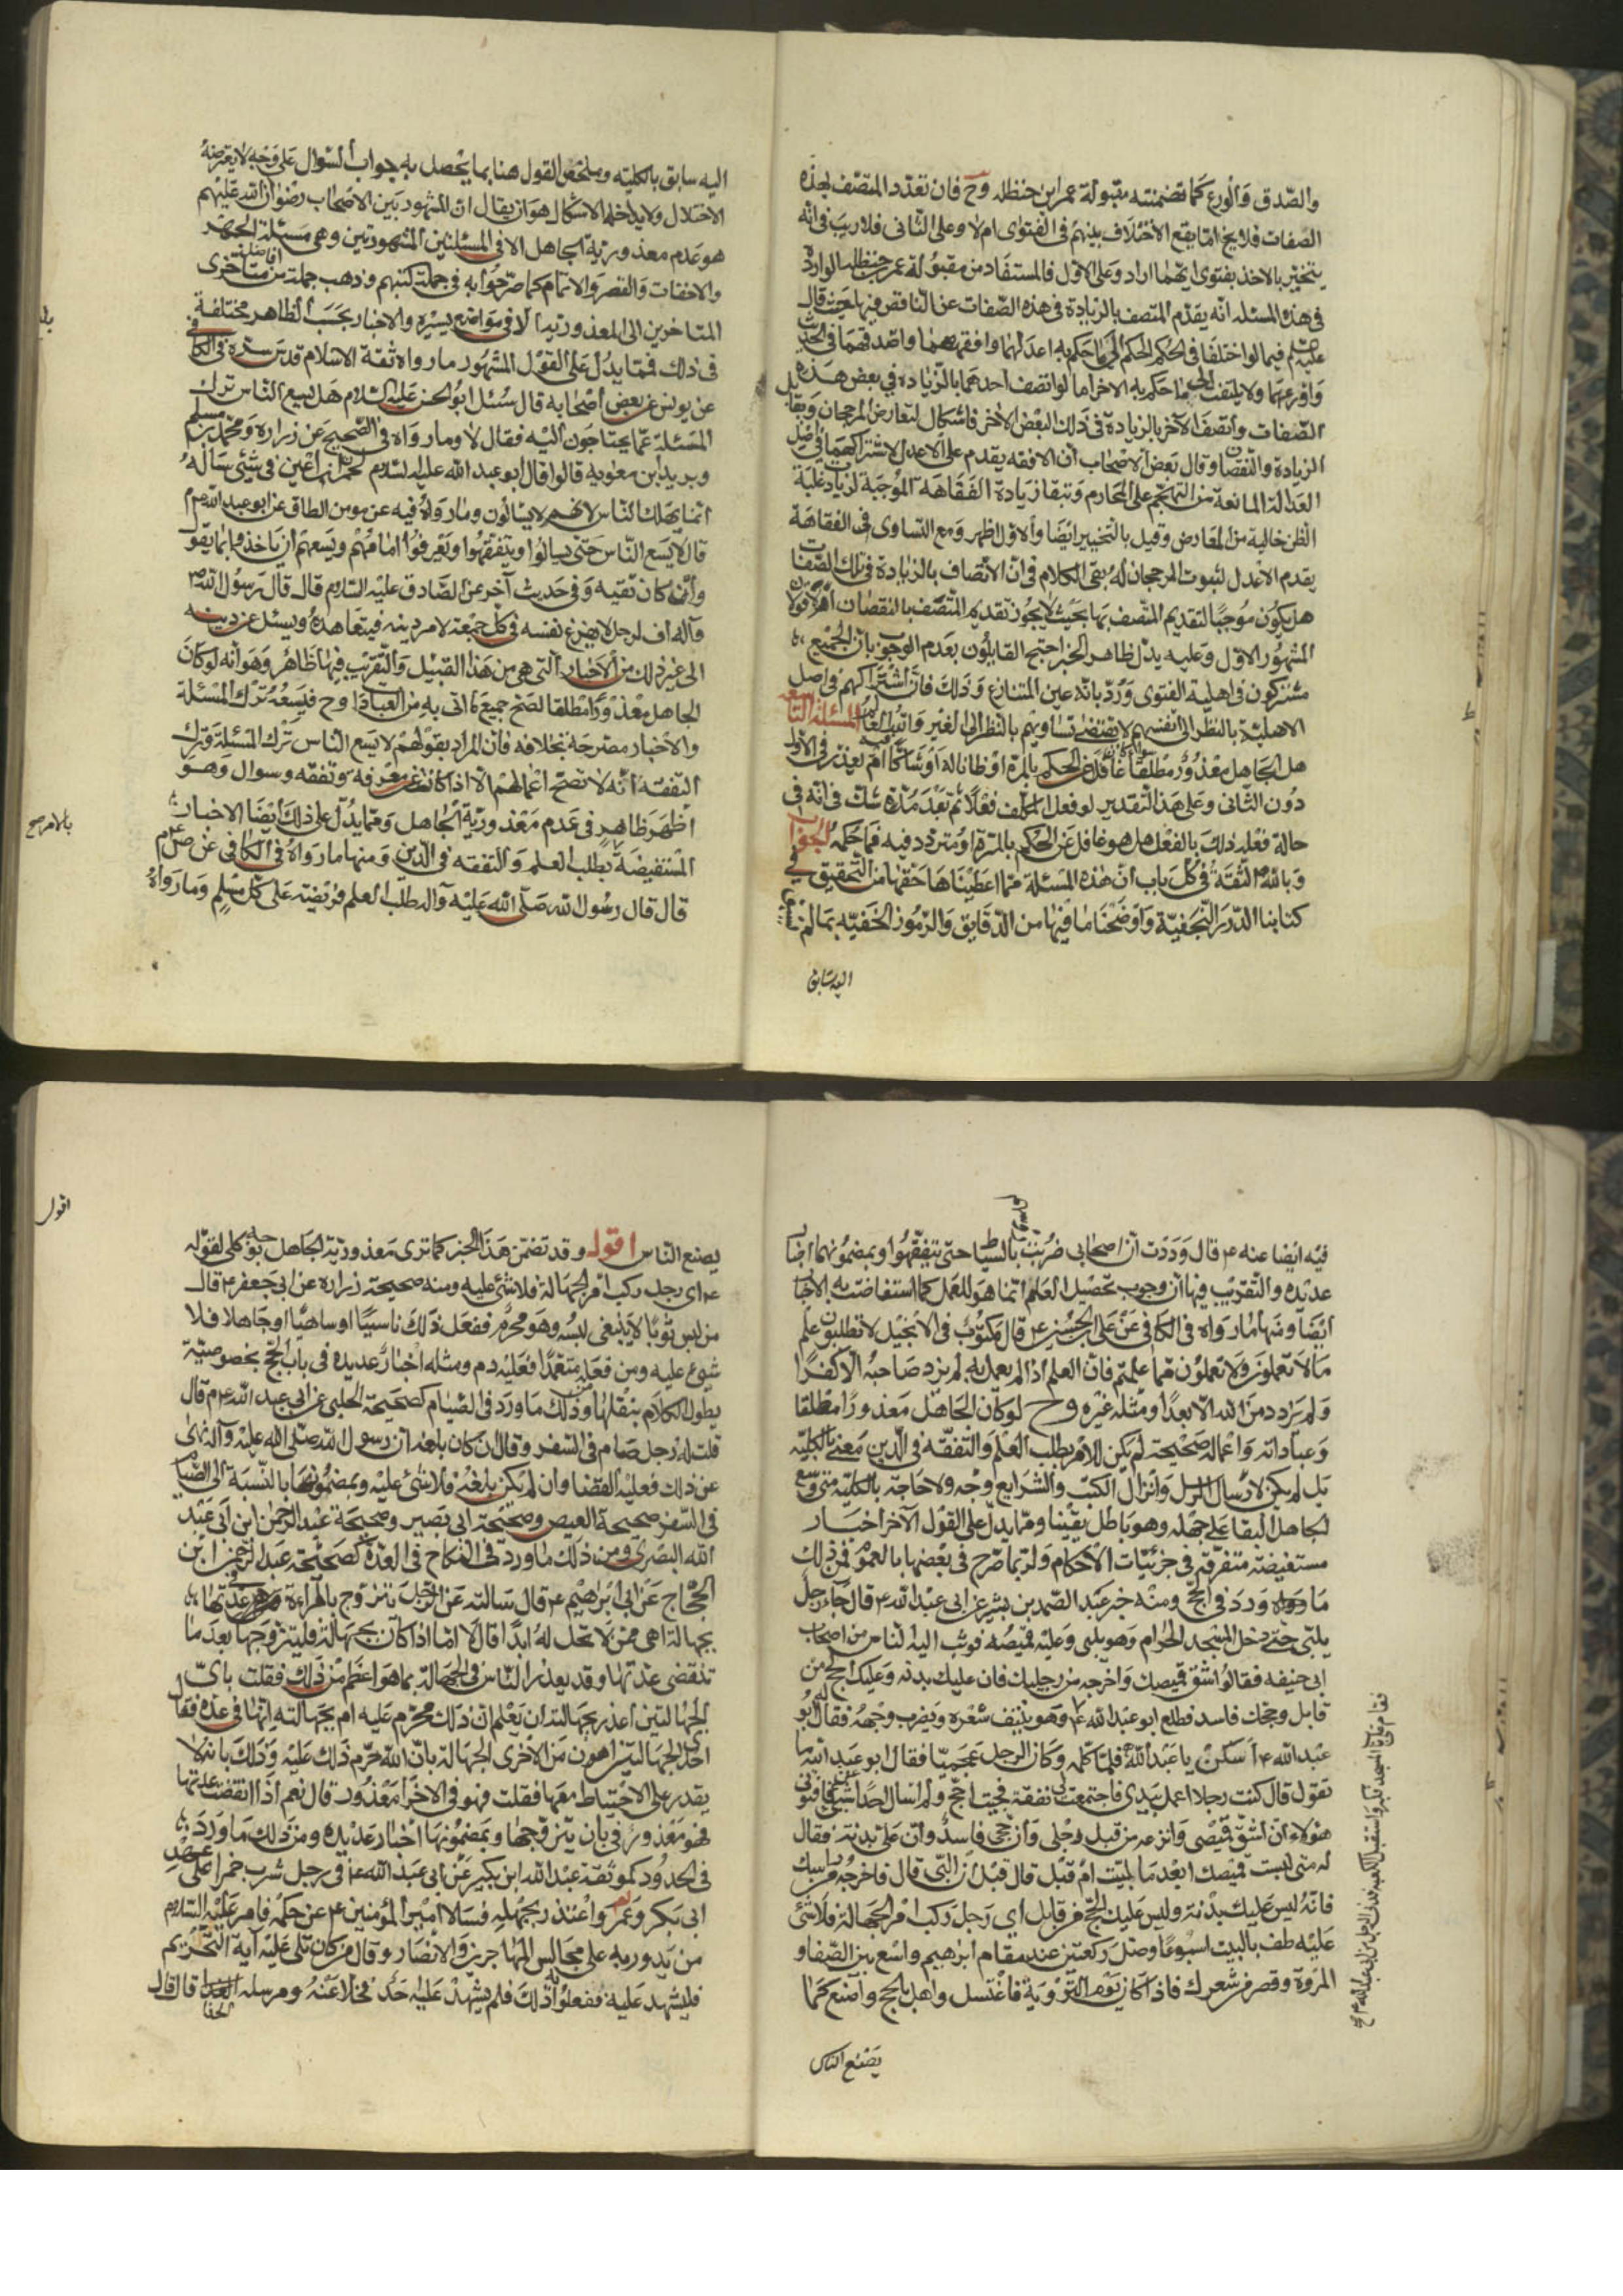 والصّدق والورع كما تضمنته مقبولة عمر ابن حنظله وح فان تعدّد المتّصف بهذه
الصّفات فلا يخ امّا يقع الاختلاف بينهم فى الفتوى ام لا وعلى الثّانى فلا ريب فى انّه
يتخيّر بالاخذ بفتوى ايّهما اراد وعلى الاوّل فالمستفاد من مقبولة عمر بن حنظلة الواردة
فى هذه المسئله انّه يقدّم المتّصف بالزّيادة فى هذه الصّفات عن النّاقص فيها حيث قال
عليه فيما لو اختلفا فى الحكم الحكم ما حكم به اعدلهما وافقههما واصدقهما فى الحديث
واورعهما ولا يلتفت الى ما حكم به الاخر امّا لو اتّصف احدهما بالزّيادة فى بعض هذه
الصّفات واتّصف الآخر بالزيادة فى ذلك البعض الاخر فاشكال لتعارض المرجحان وتقابل
الزيادة والنّقصان وقال بعض الاصحاب أن الافقه يقدم على الاعدل لاشتراكهما فى اصل
العدالة المانعة من التهجّم على المحارم وتبقا زيادة الفقاهه الموجبة لزيادة غلبة
الظن خالية من المعارض وقيل بالتخيير ايضا والاوّل اظهر ومع التساوى فى الفقاهة
يقدم الاعدل لثبوت المرجحان له بقى الكلام فى انّ الاتّصاف بالزّيادة فى تلك الصّفات
هل يكون موجبًا لتقديم المتّصف بها بحيث لا يجوز تقديم المتّصف بالنقصان أم لا قولان
المشهور الاوّل وعليه يدلّ ظاهر الخبر احتج القايلون بعدم الوجوب بانّ الجميع
مشتركون فى اهلية الفتوى وردّ بانّه عين المتنازع وذلك فانّ اشتراكهم فى اصل
الاهليّة بالنّظر الى انفسهم لا يقتضى تساويهم بالنظر الى الغير واتبع العالم المسئلة التّاسعه
هل الجاهل معذور مطلقًا غافلا عن الحكم بالمرّة او ظانا له او شاكّا ام يعذر فى الاول
دون الثّانى وعلى هذا التّقدير لو فعل المكلّف فعلًا ثم بعد مدّة شكّ فى انّه فى
حالة فعله ذلك بالفعل هل هو غافل عن الحكم بالمرّة او متردد فيه فما حكمه الجواب
وبالله الثّقة فى كلّ باب أنّ هذه المسئلة ممّا اعطيناها حقّها من التّحقيق فى
كتابنا الدّرر النّجفيّة واوضحنا ما فيها من الدّقايق والرّموز الخفيّه بما لم يسبق
اليه سابق
اليه سابق بالكليّه وملخص القول هنا بما يحصل به جواب السّوال على وجه لا يعتريه
الاختلال ولا يداخله الاشكال هو ان يقال انّ المشهور بين الاصحاب رضوان الله عليهم
هو عدم معذورية الجاهل الا فى المسئلتين المشهورتين وهى مسئلة الجهر
والاخفات والقصر والاتمام كما صرّحوا به فى جملة كتبهم وذهب جملة من افاضل متاخرى
المتاخرين الى المعذوريّة الا فى مواضع يسيرة والاخبار بحسب الظاهر مختلفة
فى ذلك فممّا يدلّ على القول المشهور ما رواه ثقة الاسلام قدس سرّه فى الكافى
عن يونس عن بعض أصحابه قال سئل ابو الحسن عليه السّلام هل يسع النّاس ترك
المسئلة عمّا يحتاجون اليه فقال لا وما رواه فى الصّحيح عن زرارة ومحمد بن مسلم
وبريد ابن معويه قالوا قال ابو عبد الله عليه السّلام لحمران ابن اعين فى شيئ سأله
انّما يهلك النّاس لانهم لا يسألون وما رواه فيه عن مومن الطاق عن ابو عبد الله م
قال لا يسع النّاس حتى يسالوا ويتفقهوا ويعرفوا امامهم ويسعهم ان ياخذوا بما يقول
وأن كان تقيه وفى حديث آخر عن الصّادق عليه السّلام قال قال رسول الله ص
وآله اف لرجل لا يفرغ نفسه فى كلّ جمعة لامر دينه فيتعاهده ويسئل عن دينه
الى غير ذلك من الاخبار الّتى هى من هذا القبيل والتّقريب فيها ظاهر وهو انّه لو كان
الجاهل معذورا مطلقا لصحّ جميع ما اتى به من العبادات وح فيسعه ترك المسئلة
والاخبار مصرحة بخلافه فانّ المراد بقولهم لا يسع الناس ترك المسئلة وترك
التفقه انّه لا تصح اعمالهم الّا اذا كانت عن معرفه وتفقه وسوال وهو
اظهر ظاهر فى عدم معذوريّة الجاهل وممّا يدلّ على ذلك أيضا الاخبار
المستفيضة بطلب العلم والتفقه فى الدّين ومنها ما رواه فى الكافى عن ص م
قال قال رسول الله صلّى الله عليه وآله طلب العلم فريضة على كلّ مسلم وما رواه
بالامر صح
فيه ايضا عنه ع قال وددت أنّ اصحابى ضربت بالسّياط حتى يتفقّهوا وبمضمونهما اخبار
عديده والتقريب فيها انّ وجوب تحصيل العلم انّما هو للعمل كما استفاضت به الاخبار
ايضا ومنها ما رواه فى الكافى عن على بن الحسين ع قال مكتوب فى الانجيل لا تطلبون علم
ما لا تعلمون ولا تعملون ممّا علمتم فانّ العلم اذا لم يعمل به لم يزد صاحبه الّا كفرًا
ولم يزدد من الله الّا بعدًا ومثله غيره وح لو كان الجاهل معذورا مطلقا
وعباداته واعماله صحيحة لم يكن للامر بطلب العلم والتفقه فى الدّين معنى بالكليّه
بل لم يكن لارسال الرسل وانزال الكتب والشرايع وجه ولا حاجة بالكليّة متى وسع
الجاهل البقا على جهله وهو باطل يقينا وممّا يدلّ على القول الآخر اخبار
مستفيضة متفرّقة فى جزئيّات الاحكام ولربّما صرّح فى بعضها بالعموم فمن ذلك
ما ورد فى الحج ومنه خبر عبد الصّمد بن بشير عن ابى عبد الله ع قال جاء رجل
يلبّى حتّى دخل المسجد الحرام وهو يلبى وعليه قميصه فوثب اليه النّاس من اصحاب
ابى حنيفه فقالوا شقّ قميصك واخرجه من رجليك فان عليك بدنه وعليك الحج من
قابل وحجّك فاسد فطلع ابو عبد الله ع وهو ينتف شعره ويضرب وجهه فقال له ابو
عبد الله ع اسكن يا عبد الله فلمّا كلّمه وكان الرجل عجميّا فقال ابو عبد الله ما
تقول قال كنت رجلا اعمل بيدى فاجتمعت لى نفقة فجئت احجّ ولم اسال احدا عن شيئ فافتونى
هولاء أن اشقّ قميصى وانزعه من قبل رجلى وأن حجّى فاسد وأن علىّ بدنة فقال
له متى لبست قميصك ابعد ما لبّيت ام قبل قال قبل أن البّى قال فاخرجه من راسك
فانّه ليس عليك بدنة وليس عليك الحجّ من قابل اى رجل ركب امرا بجهالة فلا شئ
عليه طف بالبيت اسبوعا وصلّ ركعتين عند مقام ابرهيم واسع بين الصّفا و
المروة وقصر من شعرك فاذا كان يوم التّروية فاغتسل واهل بالحج واصنع كما
يصنع الناس
اقول
يصنع النّاس اقول وقد تضمن هذا الخبر كما ترى معذوريّة الجاهل بوجه كلى لقوله
ع اى رجل ركب امرا بجهالة فلا شئ عليه ومنه صحيحة زرارة عن ابى جعفر ع قال
من لبس ثوبًا لا ينبغى لبسه وهو محرم ففعل ذلك ناسيًا او ساهيًا او جاهلا فلا
شيئ عليه ومن فعله متعمّدًا فعليه دم ومثله اخبار عديده فى باب الحجّ بخصوصيّة
يطول الكلام بنقلها ومن ذلك ما ورد فى الصّيام كصحيحة الحلبى عن ابى عبد الله ع م قال
قلت له رجل صام فى السّفر وقال ان كان بلغه أنّ رسول الله صلّى الله عليه وآله نهى
عن ذلك فعليه القضا وان لم يكن بلغه فلا شئ عليه وبمضمونها بالنسبة الى الصّيام
فى السّفر صحيحة العيص وصحيحة ابى بصير وصحيحة عبد الرّحمن ابن ابى عبد
الله البصرى ومن ذلك ما ورد فى النكاح فى العدّة كصحيحة عبد الرّحمن ابن
الحجّاج عن ابى ابرهيم ع قال سالته عن الرّجل يتزوج بالمراءة فى عدّتها
بجهالة اهى ممّن لا تحل له ابدًا قال لا امّا اذا كان بجهالة فليتزوّجها بعد ما
تنقضى عدّتها وقد يعذر النّاس فى الجهالة بما هو اعظم من ذلك فقلت باىّ
الجهالتين اعذر بجهالته ان يعلم انّ ذلك محرّم عليه ام بجهالته انّها فى عدّة فقال
احدى الجهالتين اهون من الأخرى الجهالة بانّ الله حرّم ذلك عليه وذلك بانّه لا
يقدر على الاحتياط معها فقلت فهو فى الاخرى معذور قال نعم اذا انقضت عدّتها
فهو معذور فى بان يتزوّجها وبمضمونها اخبار عديده ومن ذلك ما ورد
فى الحدود كموثقة عبد الله ابن بكير عن ابى عبد الله ع فى رجل شرب خمرا على عهد
ابى بكر وعمر واعتذر بجهله فسالا امير المؤمنين ع عن حكمه فامر عليه السّلام
من يدور به على مجالس المهاجرين والانصار وقال من كان تلى عليه آية التّحريم
فليشهد عليه ففعلوا ذلك فلم يشهد عليه احد فخلا عنه ومرسله قال قال